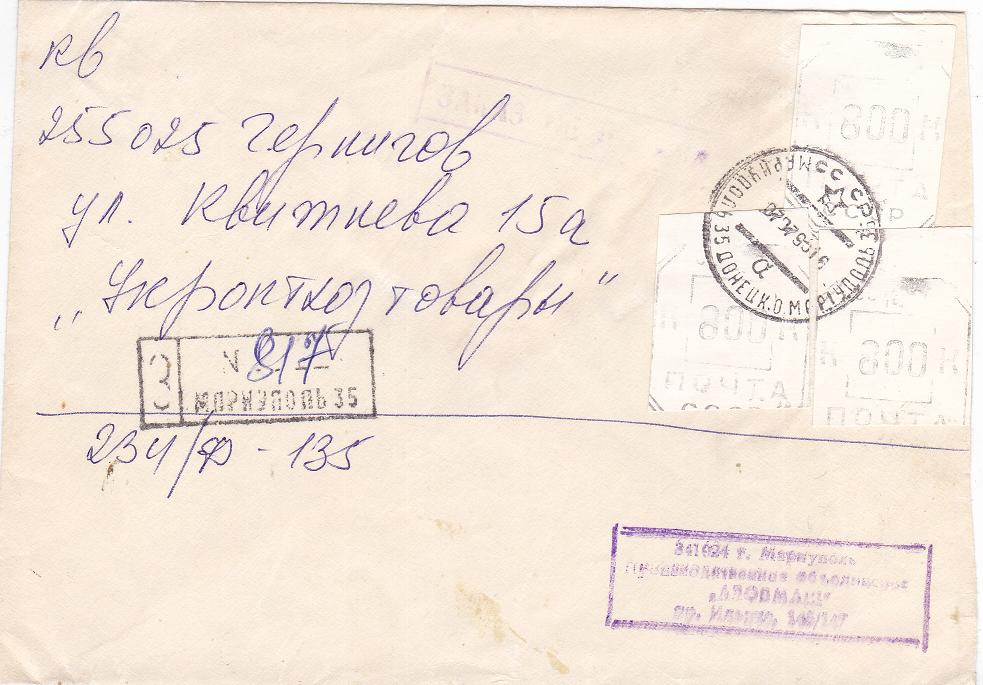 кв
255025 Чернигов
ул. Квитнева 15а
"Укроптхозтовары"
З
N 817
МАРИУПОЛЬ 35
234/Ф-135
Н 006
СССР
Н 006 Н
ПОЧТА
СССР
Н 006 Н
ПОЧТА
СССР МАРИУПОЛЬ 35 ДОНЕЦК.О. МАРІУПОЛЬ 35
а
341024 г. Мариуполь
Производственное объединение
"АЗОВМАШ"
пр. Ильича, 145/147